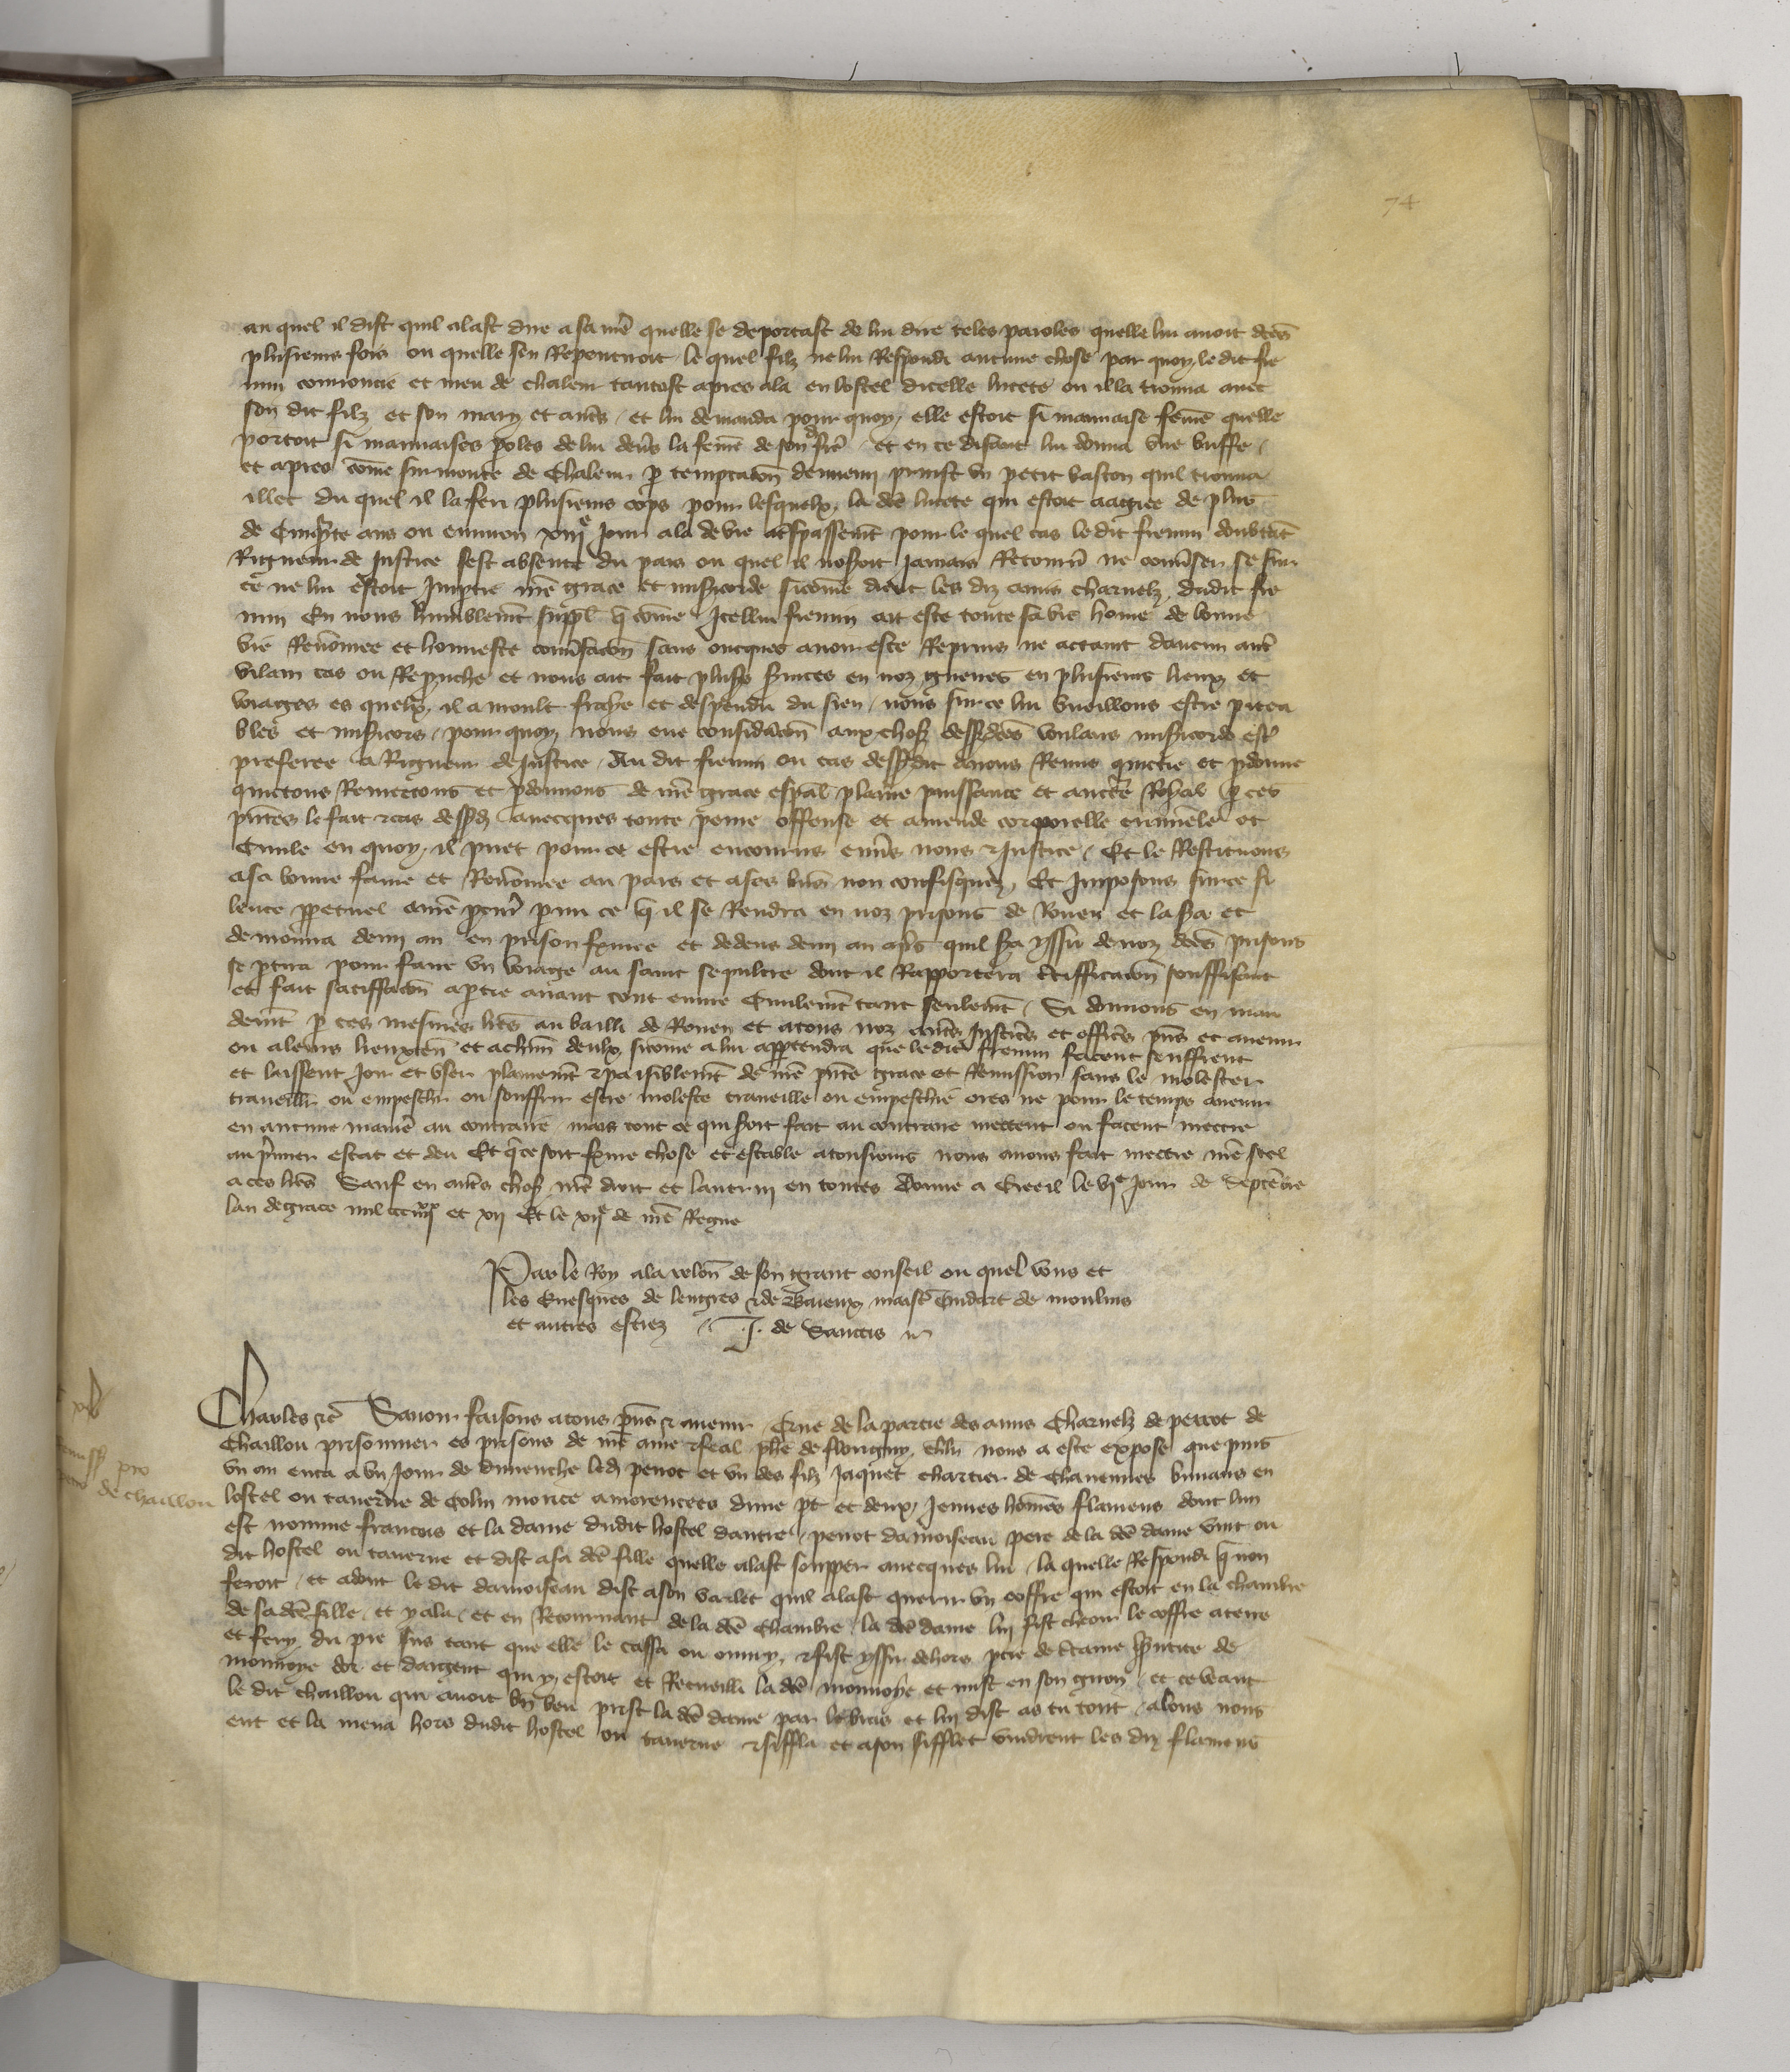 74
au quel il dist quil alast dire a sa mē quelle se deportast de lui dire teles paroles quelle lui auoit dc̄es
plusieurs fois ou quelle sen Repentiroit le quel filz ne lui Respondi aucune chose par quoy le dit fre
min courroucie et meu de chaleur tantost apres ala en lostel dicelle lucete ou il la trouua auec
son dit filz et son mary et aut̄s et lui demanda pour quoy elle estoit si mauuaise fem̄e quelle
portoit si mauuaises p̄oles de lui deūs la fem̄e de son frē et en ce disant lui donna vne buffe
et apres com̄e surmonte de chaleur p̄ temptacōn dennemi prinst vn petit baston quil trouua
illec du quel il la feri plusieurs cops pour lesquelx la dc̄e lucete qui estoit aagiee de plus
de Cinq̄nte ans ou enuiron xiiij e Jour ala de vie a t̄spassem̄t pour le quel cas le dit fremin doubtāt
Rigueur de Justice sest absente du pais ou quel il noseroit Jamais Retourn̄ ne conūser se sur
ce ne lui estoit Imp̄tie nr̄e grace et mis̄icorde sicom̄e dient les diz amis charnelz dudit fre
min En nous humblem̄t suppl̄ q̄ com̄e Icellui fremin ait este toute sa vie hom̄e de bonne
vie Renōmee et honneste conūsacōn sans oncques auoir este Reprins ne actaint daucun aut̄
vilain cas ou Reprouche et nous ait fait plus̄s s̄uices en noz guerres en plusieurs lieux et
voiages es quelx il a moult fraye et despendu du sien nous sur ce lui vueillons estre pitea
bles et mis̄icors pour quoy nous eue consid̄acōn aux chos̄ dess̄dc̄es voulans mis̄icorde estr̄
preferee a Rigueur de Justice Au dit fremin ou cas dess̄dit auons Remis quictie et p̄donne
quictons Remectons et p̄donnons de nr̄e grace esp̄al plaine puissance et auct̄te Royal p̄ ces
pn̄tes le fait & cas dess̄d auecques toute peine offense et amende corporelle criminele et
Ciuile en quoy il puet pour ce estre encouru enūs nous & Justice Et le Restituons
a sa bonne fame et Renōmee au pais et a ses biēs non confisquez Et Imposons sur ce si
lence ppetuel a nr̄e pcur̄ p̄mi ce q̄ il se Rendra en noz prisons de Rouen et la s̄a et
demourra demi an en prison fermee et dedens demi an ap̄s quil s̄a yssu de noz dc̄es prisons
se p̄tira pour faire vn voiage au saint sepulcre dont il Rapportera c̄tifficacōn souffisant
et fait satiffacōn a p̄tie auant tout euure Ciuilem̄t tant seulem̄t Si donnons en man
dem̄t p̄ ces mesmes lr̄es au bailli de Rouen et a tous noz aut̄s Justic̄s et offic̄s pn̄s et auenir
ou a leurs lieuxten̄ et a chūn deulx sicom̄e a lui app̄tendra que le dit fremin facent seuffrent
et laissent Joir et vser plainem̄t & paisiblem̄t de nr̄e pn̄te grace et Remission sans le molester
trauaill̄r ou empesch̄r ou souffrir estre moleste trauaille ou empeschie ores ne pour le temps auenir
en aucune manie͂ au contraire mais tout ce qui seroit fait au contraire mectent ou facent mectre
au p̄mier estat et deu Et q̄ ce soit ferme chose et estable a tousiours nous auons fait mectre nr̄e seel
a ces lr̄es Sauf en aut̄s chos̄ nr̄e droit et lautrui en toutes Donne a Creeil le vj e Jour de Septēbre
lan de grace mil ccc iiij xx et xij Et le xij e de nr̄e Regne
Par le Roy a la relōn de son grant conseil ou quel vous et
les Euesques de lengres & de Baieux maistr̄ Oudart de moulins
et autres estiez J. de Sanctis
Charles &c̄ Sauoir faisons a tous pn̄s & auenir De la partie des amis Charnelz de perrot de
Chaillou prisonnier es prisons de nr̄e ame & feal phē de florigny chlr̄ nous a este expose que puis
vn an enca a vn Jour de dimenche led perrot et vn des filz Jaquet chartier de Chauennes buuans en
lostel ou tauerne de Colin morice a morencets dune p̄t et deux Jeunes hom̄es flamens dont lun
est nomme francois et la dame dudit hostel dautre perrot damoiseau pere de la dc̄e dame vint ou
dit hostel ou tauerne et dist a sa dc̄e fille quelle alast soupper auecques lui la quelle Respondi q̄ non
feroit et adont le dit damoiseau dist a son varlet quil alast querir vn coffre qui estoit en la chambre
de sa dc̄e fille et y ala et en Retournant de la dc̄e Chambre la dc̄e dame lui fist cheoir le coffre a terre
et fery du pie sus tant que elle le cassa ou ouury & fist yssir dehors p̄tie de c̄taine q̄ntite de
monnoye dor et dargent qui y estoit et Recueilli la dc̄e monnoye et mist en son giron et ce veant
le dit chaillou qui auoit bn̄ beu prist la dc̄e dame par le bras et lui dist as tu tout alons nous
ent et la mena hors dudit hostel ou tauerne & siffla et a son sifflet vuidrent les diz flamens
xv
Remiss̄ pro
de chaillou